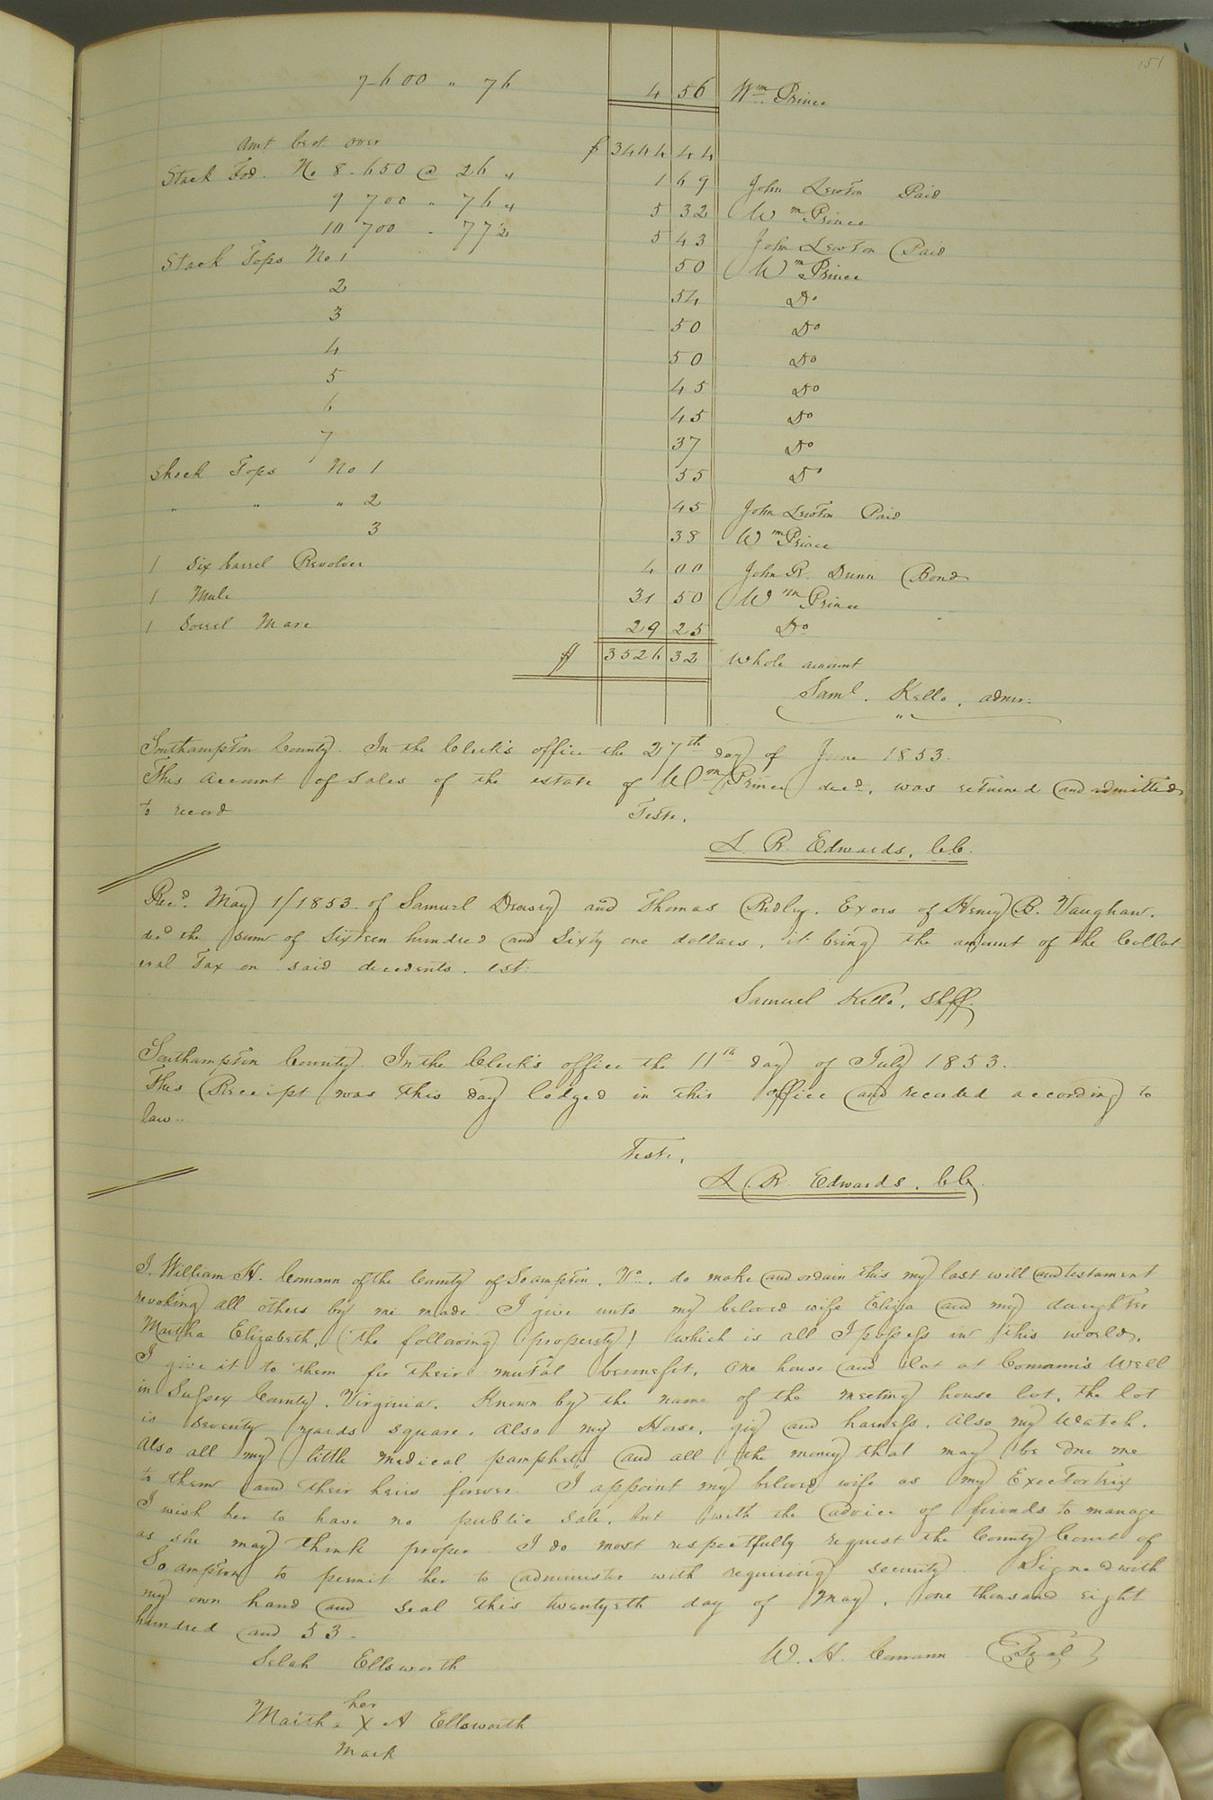 151
7-600 " 76 4 56 Wm Prince
Amt brot over $ 3444 44
Stack Fod. No 8-650 @ 26 " 1 69 John Lewton Paid
9 700 " 76 " 5 32 Wm Prince
10 700 - 77½ 5 43 John Lewton Paid
Stack Tops No 1 50 Wm Prince
2 54 Do
3 50 Do
4 50 Do
5 45 Do
6 45 Do
7 37 Do
Shock Tops No 1 55 Do
" " " 2 45 John Lewton Paid
3 38 Wm Prince
1 Six barrel Revolver 4 00 John R. Dunn Bond
1 Mule 31 50 Wm Prince
1 Sorrel Mare 29 25 Do
$ 3526 32 Whole amount
Saml. Kello, admr.
Southampton County. In the Clerk's office the 27th day of June 1853.
This account of sales of the estate of Wm Prince decd. was returned and admitted
to record Teste.
L. R. Edwards, C.C.
Recd. May 1/1853. of Samuel Drewry and Thomas Ridley. Exors of Henry B. Vaughan.
decd the sum of Sixteen hundred and Sixty one dollars, it being the amount of the Collat
eral Tax on said decedents. est.
Samuel Kello, Shff.
Southampton County. In the Clerk's office the 11th day of July 1853.
This Receipt was this day lodged in this office and recorded according to
law..
Teste,
L. R. Edwards, C.C.
I. William H. Comann of the County of Soampton, Va. do make and ordain this my last will and testament
revoking all others by me made. I give unto my beloved wife Eliza and my daughter
Martha Elizabeth, (the following property) which is all I possess in this world,
I give it to them for their mutal bennefit, one house and lot at Comann's Well
in Sussex County, Virginia. Known by the name of the meeting house lot, the lot
is seventy yards square. also my Horse, gig and harness. also my Watch.
also all my little medical pamphets and all the money that may be due me
to them and their heirs forever. I appoint my beloved wife as my Exectortrix
I wish her to have no public sale, but with the advice of friends to manage
as she may think proper. I do most respectfully request the County Court of
Soampton to permit her to administer with requiring security. Signed with
my own hand and seal this twentyeth day of May, one thousand eight
hundred and 53.
Selah Ellsworth W. H. Comann Seal
her
Martha X A Ellsworth
Mark